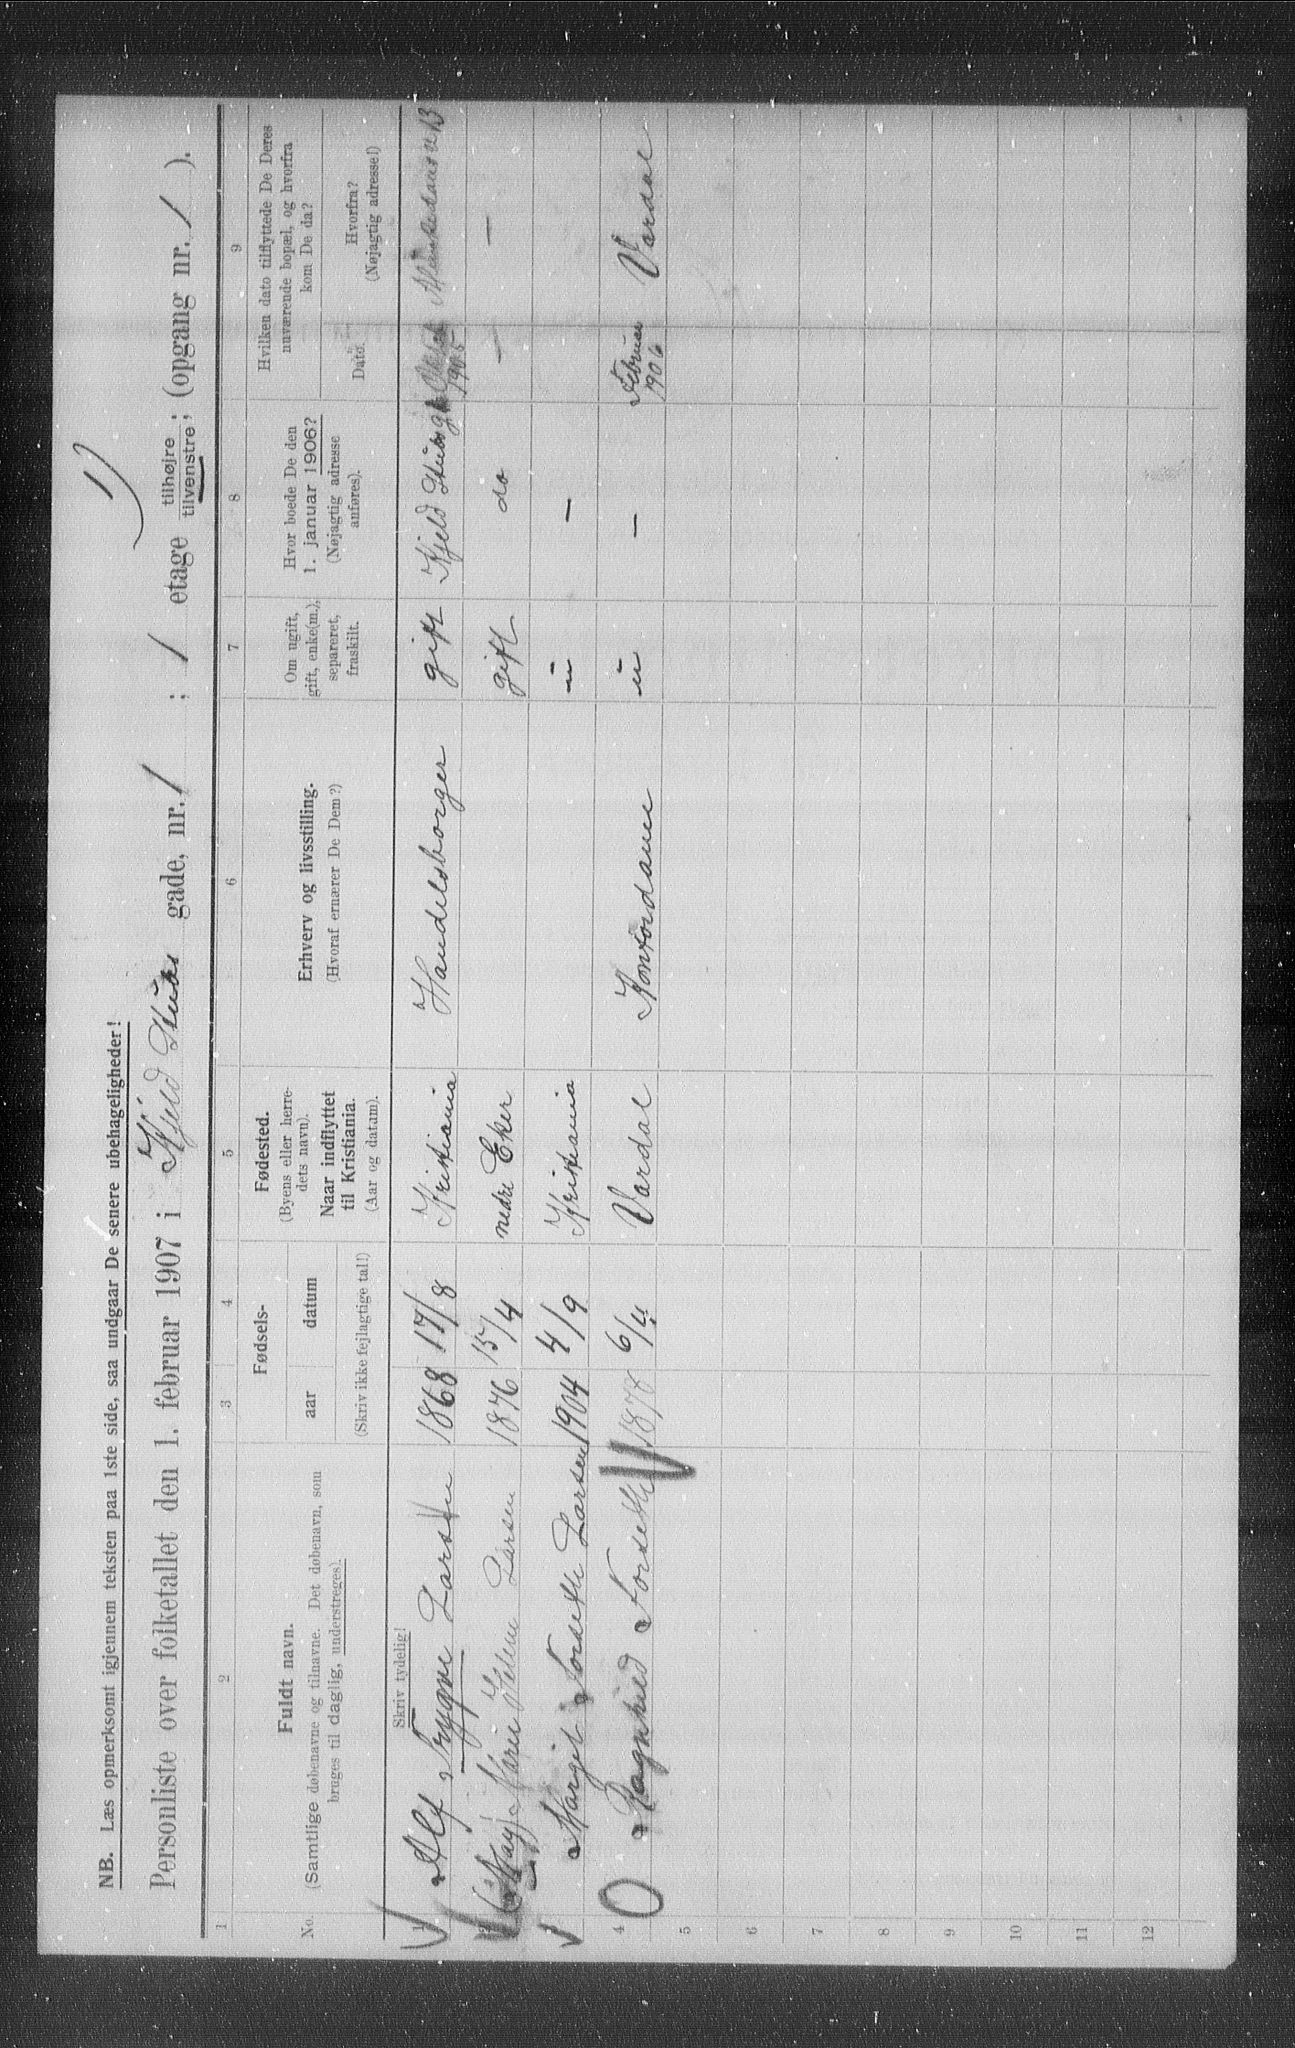 NB. Læs opmerksomt igjennem teksten paa 1ste side, saa undgaar De senere ubehageligheder!
1)
Personliste over folketallet den 1. februar 1907 i Kjeld Stubs gade, nr. 1 ; 1 etage tilhøjre tilvenstre; (opgang nr. 1 ).
1 2 3 4 5 6 7 8 9
No. Fuldt navn. (Samtlige døbenavne og tilnavne. Det døbenavn, som bruges til daglig, understreges).
Fødsels- aar datum (Skriv ikke fejlagtige tal!)
Fødested. (Byens eller herredets navn). Naar indflyttet til Kristiania. (Aar og datum).
Erhverv og livsstilling. (Hvoraf ernærer De Dem?)
Om ugift, gift, enke(m.), separeret, fraskilt.
Hvor boede De den 1. januar 1906? (Nøjagtig adresse anføres).
Hvilken dato tilflyttede De Deres nuværende bopæl, og hvorfra kom De da?
Dato. Hvorfra? (Nøjagtig adresse!)
Skriv tydelig!
1 Alf Trygve Larsen 1868 17/8 Kristiania Handelsborger gift Kjeld Stubsg 1 1905
2 Marie Helene Larsen 1876 15/4 nedre Eker gift do —
3 Margit Forseth Larsen 1904 4/9 Kristiania u —
4 Ragnhild Forseth 1878 6/4 Vardal Kontordame u — Februar 1906 Vardal
5
6
7
8
9
10
11
12